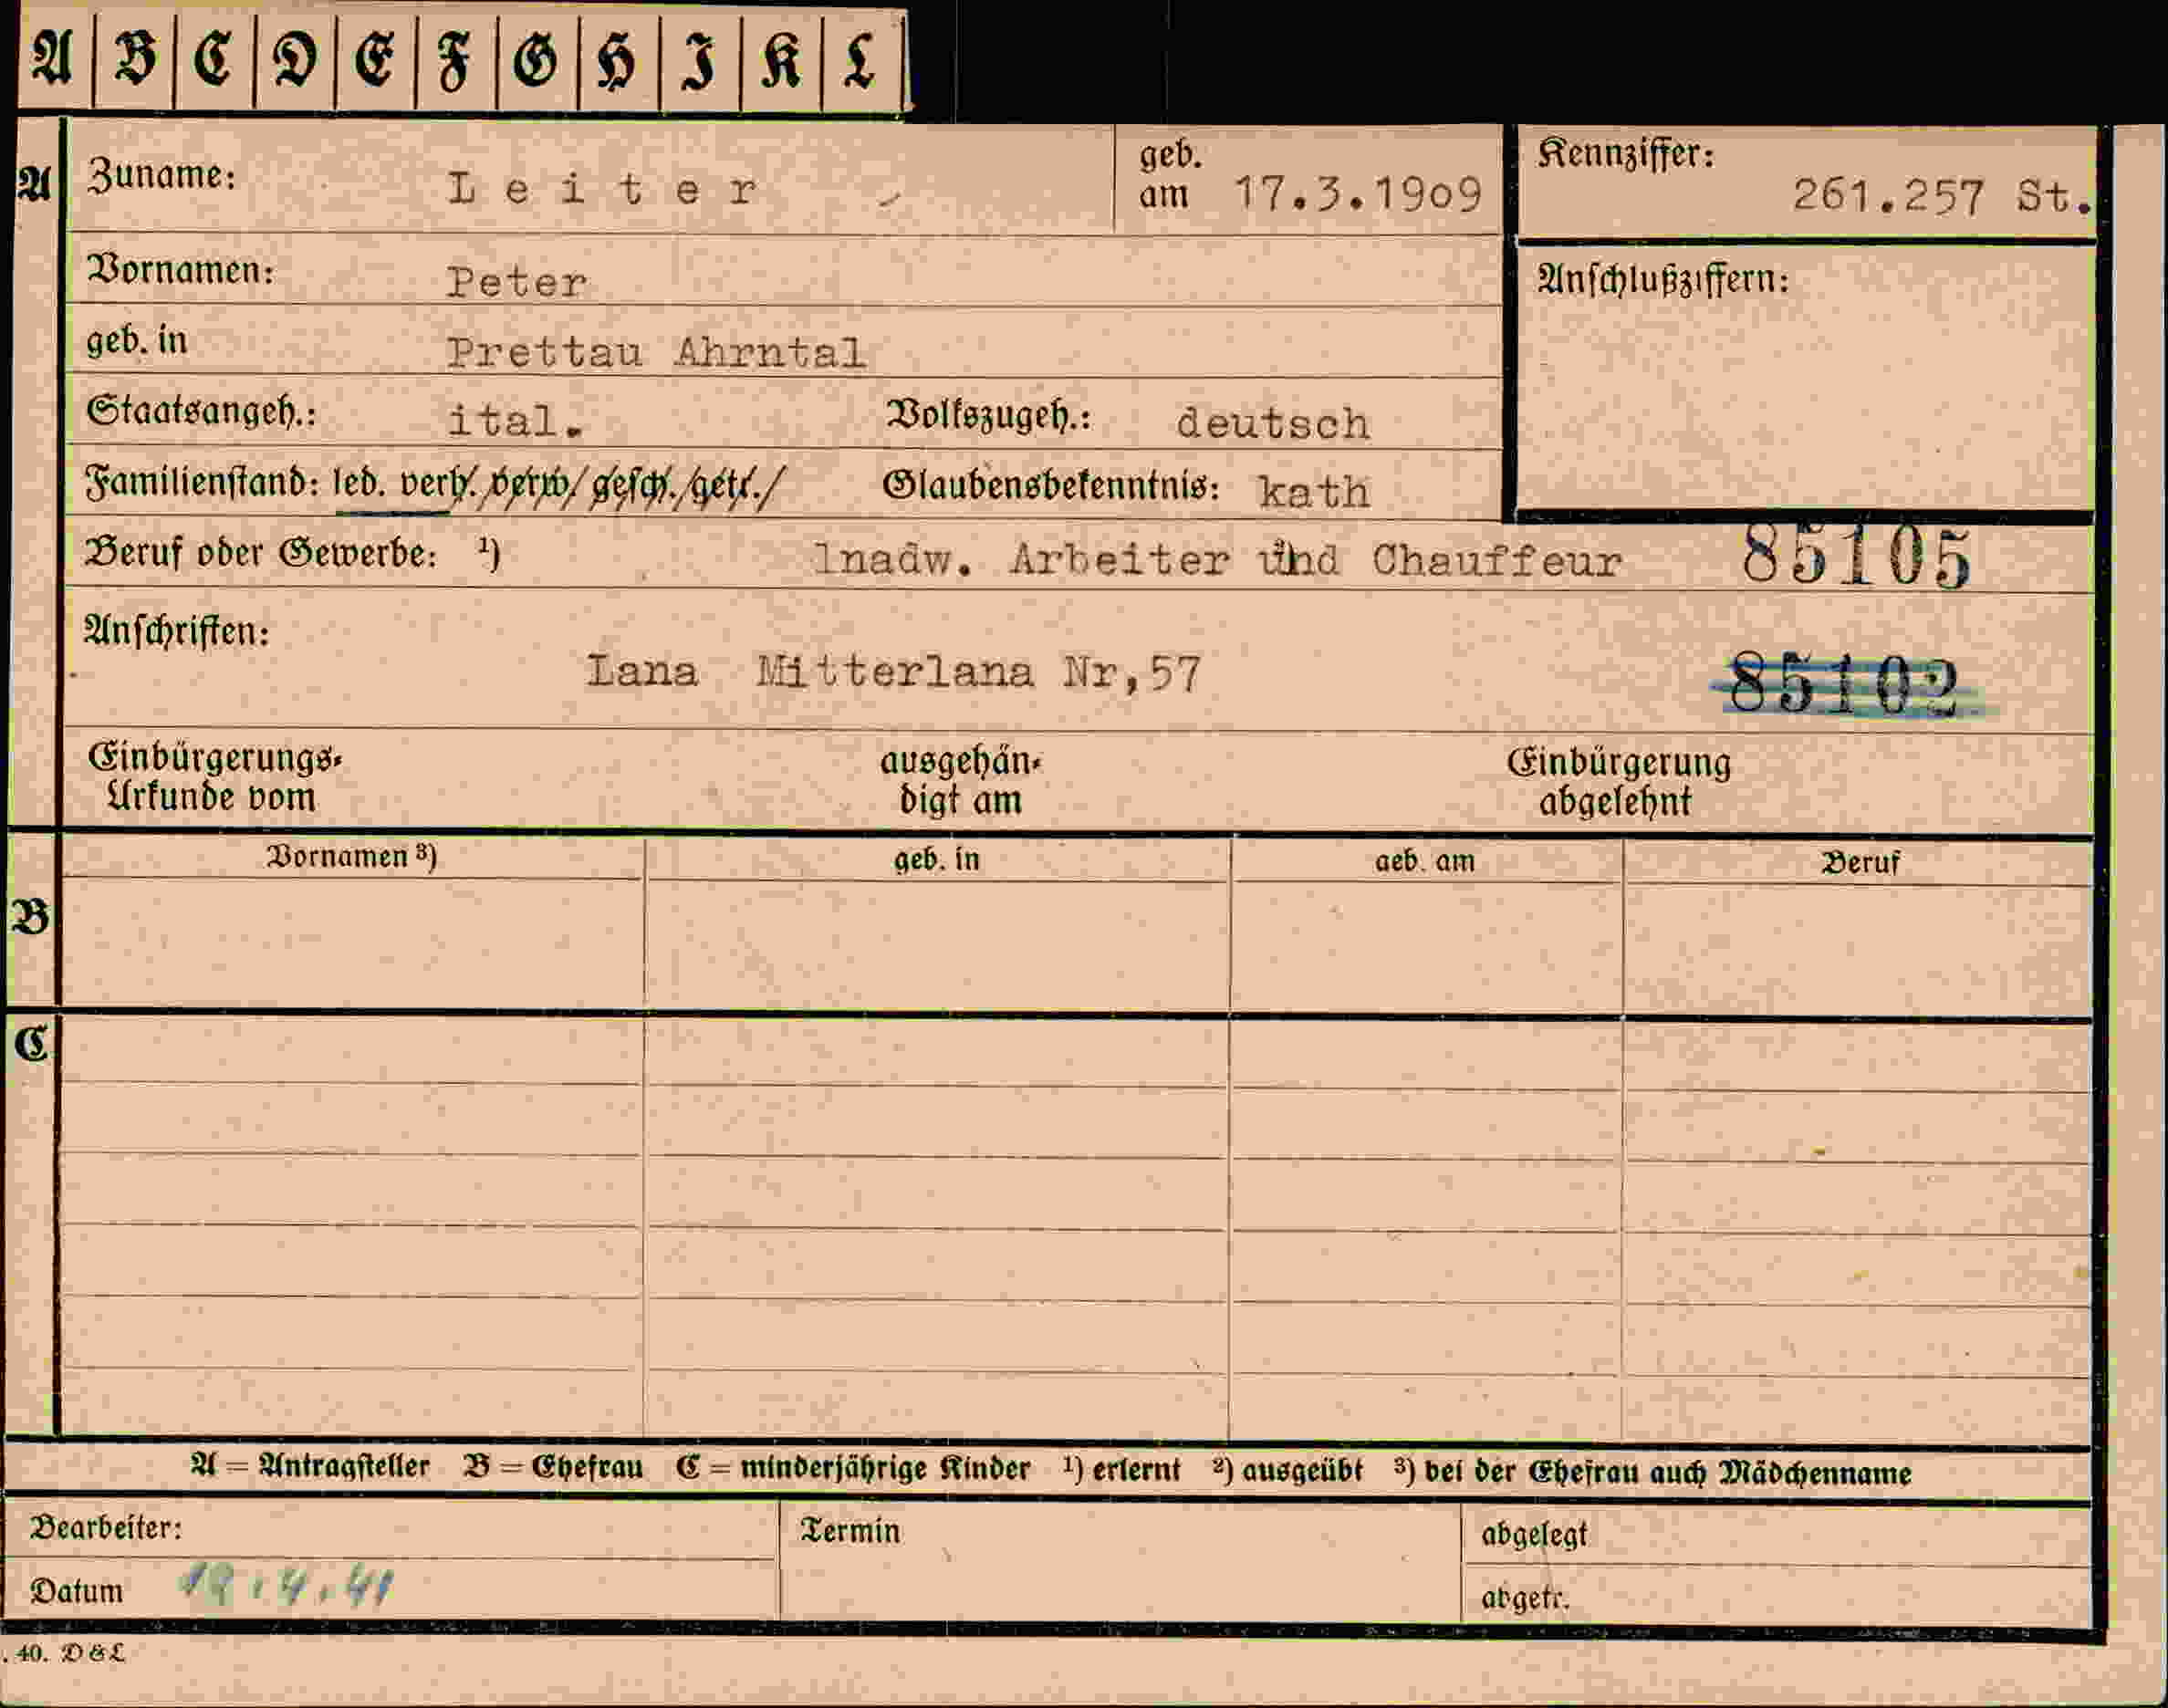 A B C D E F G H I K L
A Zuname: Leiter geb. am 17.3.1909 Kennziffer: 261.257 St.
Vornamen: Peter Anschlußziffern:
geb. in Prettau Ahrntal
Staatsangeh.: ital. Volkszugeh.: deutsch
Familienstand: led. verh. verw. gesch. getr. Glaubensbekenntnis: kath
Beruf oder Gewerbe: ¹) lnadw. Arbeiter und Chauffeur 85105
Anschriften:
Lana Mitterlana Nr,57 85102
Einbürgerungs- ausgehän- Einbürgerung
Urkunde vom digt am abgelehnt
Vornamen ³) geb. in geb. am Beruf
B
C
A = Antragsteller B = Ehefrau C = minderjährige Kinder ¹) erlernt ²) ausgeübt ³) bei der Ehefrau auch Mädchenname
Bearbeiter: Termin abgelegt
Datum 4.41 abgetr.
. 40. D & L